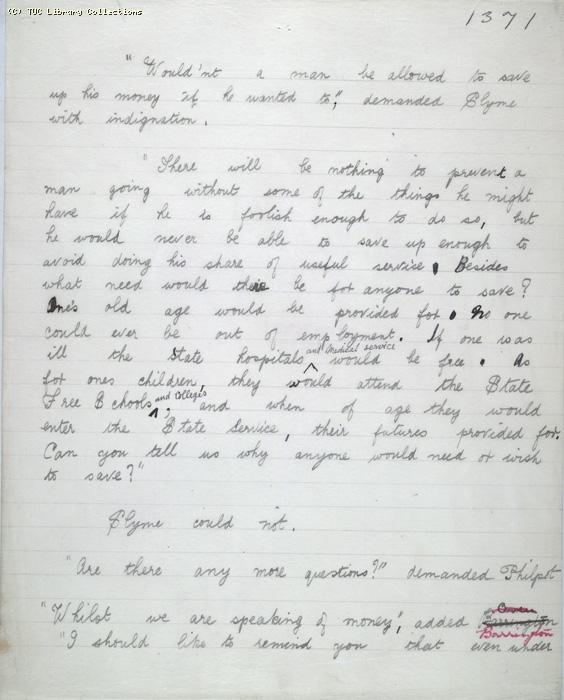 (C) TUC Library Collections
1371
"Would'nt a man be allowed to save
up his money if he wanted to", demanded Slyme
with indignation.
"There will be nothing to prevent a
man going without some of the things he might
have if he is foolish enough to do so, but
he would never be able to save up enough to
avoid doing his share of useful service. Besides
what need would there be for anyone to save?
One's old age would be provided for. No one
could ever be out of employment. If one was
ill the State hospitals and Medical service would be free. As
for ones children, they would attend the State
Free Schools and Colleges, and when of age they would
enter the State Service, their futures provided for.
Can you tell us why anyone would need or wish
to save?"
Slyme could not.
"Are there any more questions?" demanded Philpot
"Whilst we are speaking of money", added Barrington Owen
Barrington
"I should like to remind you that even under